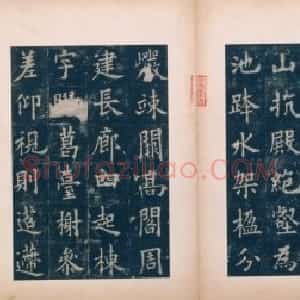 山抗殿絕壑為
池跨水架楹分
巖竦闕高閣周
建長廊四起棟
宇葛臺榭參
差仰視則迢遰
Shufaziliao.com